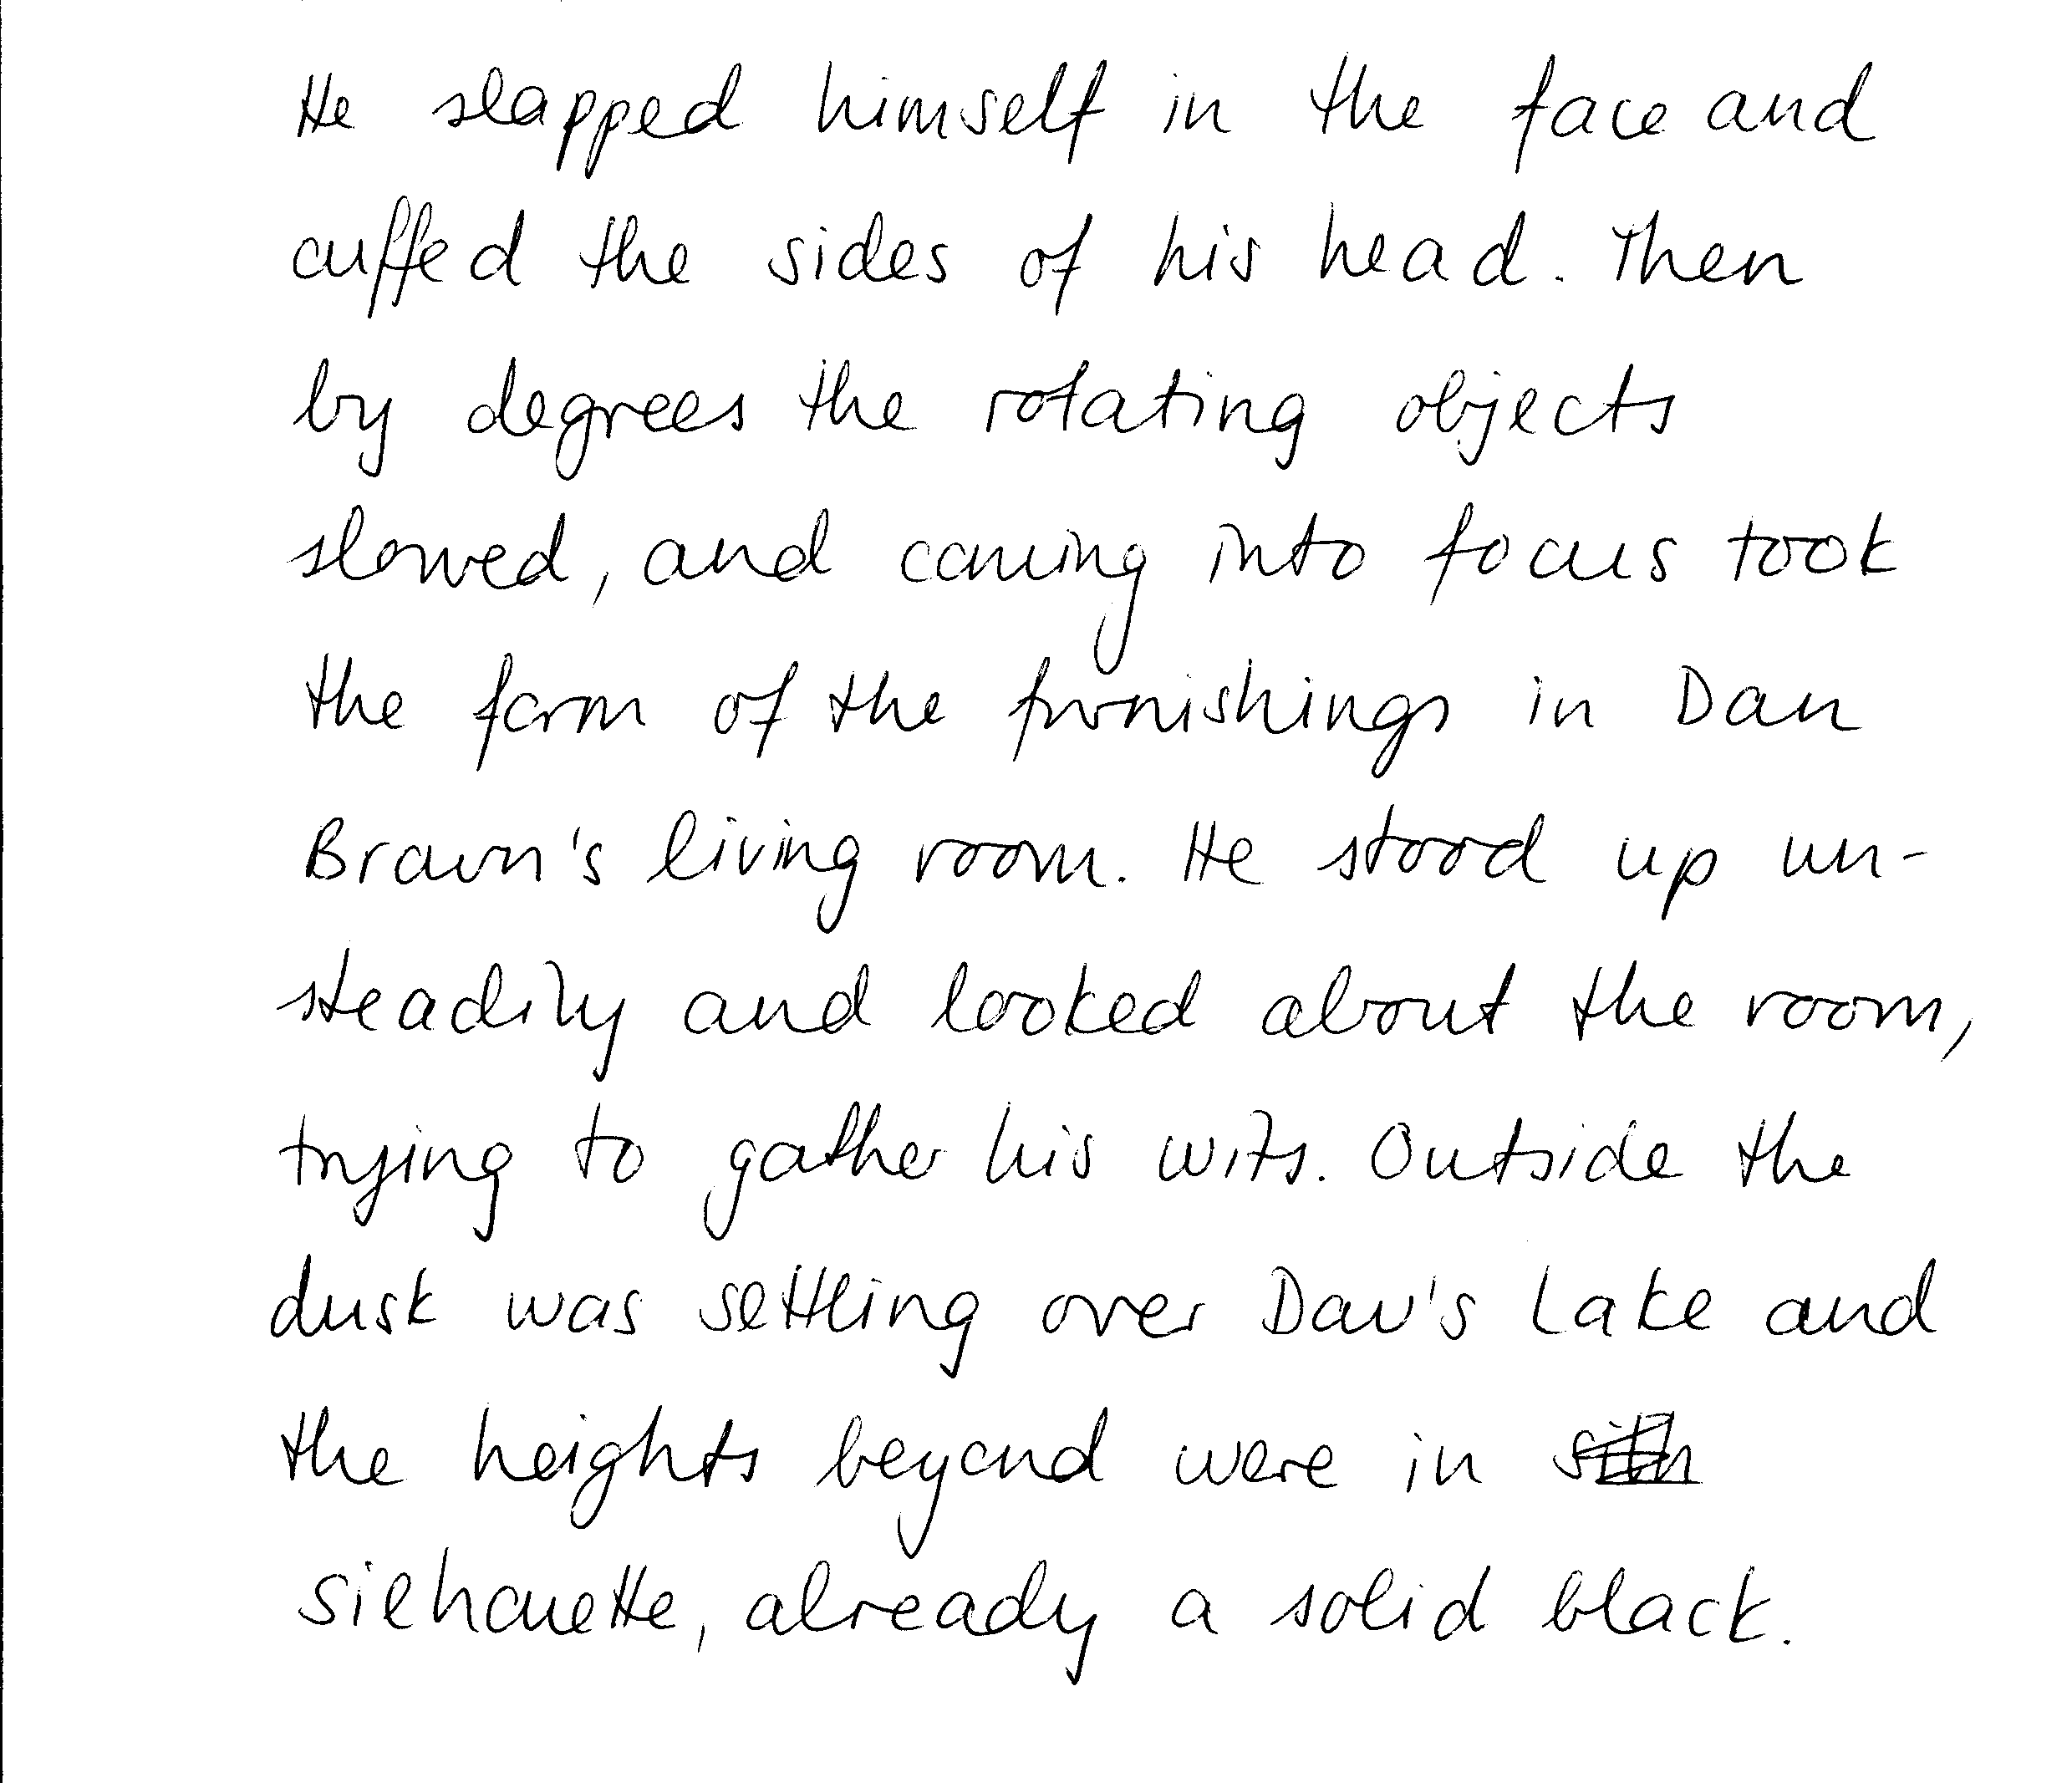 He slapped himself in the face and
cuffed the sides of his head. Then
by degrees the rotating objects
slowed, and coming into focus took
the form of the furnishings in Dan
Brown's living room. He stood up un-
steadily and looked about the room,
trying to gather his wits. Outside the
dusk was settling over Dav's Lake and
the heights beyond were in
silhouette, already a solid black.